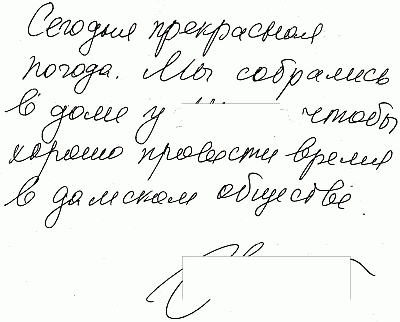 Сегодня прекрасная
погода. Мы собрались
в доме у чтобы
хорошо провести время
в дамском обществе.